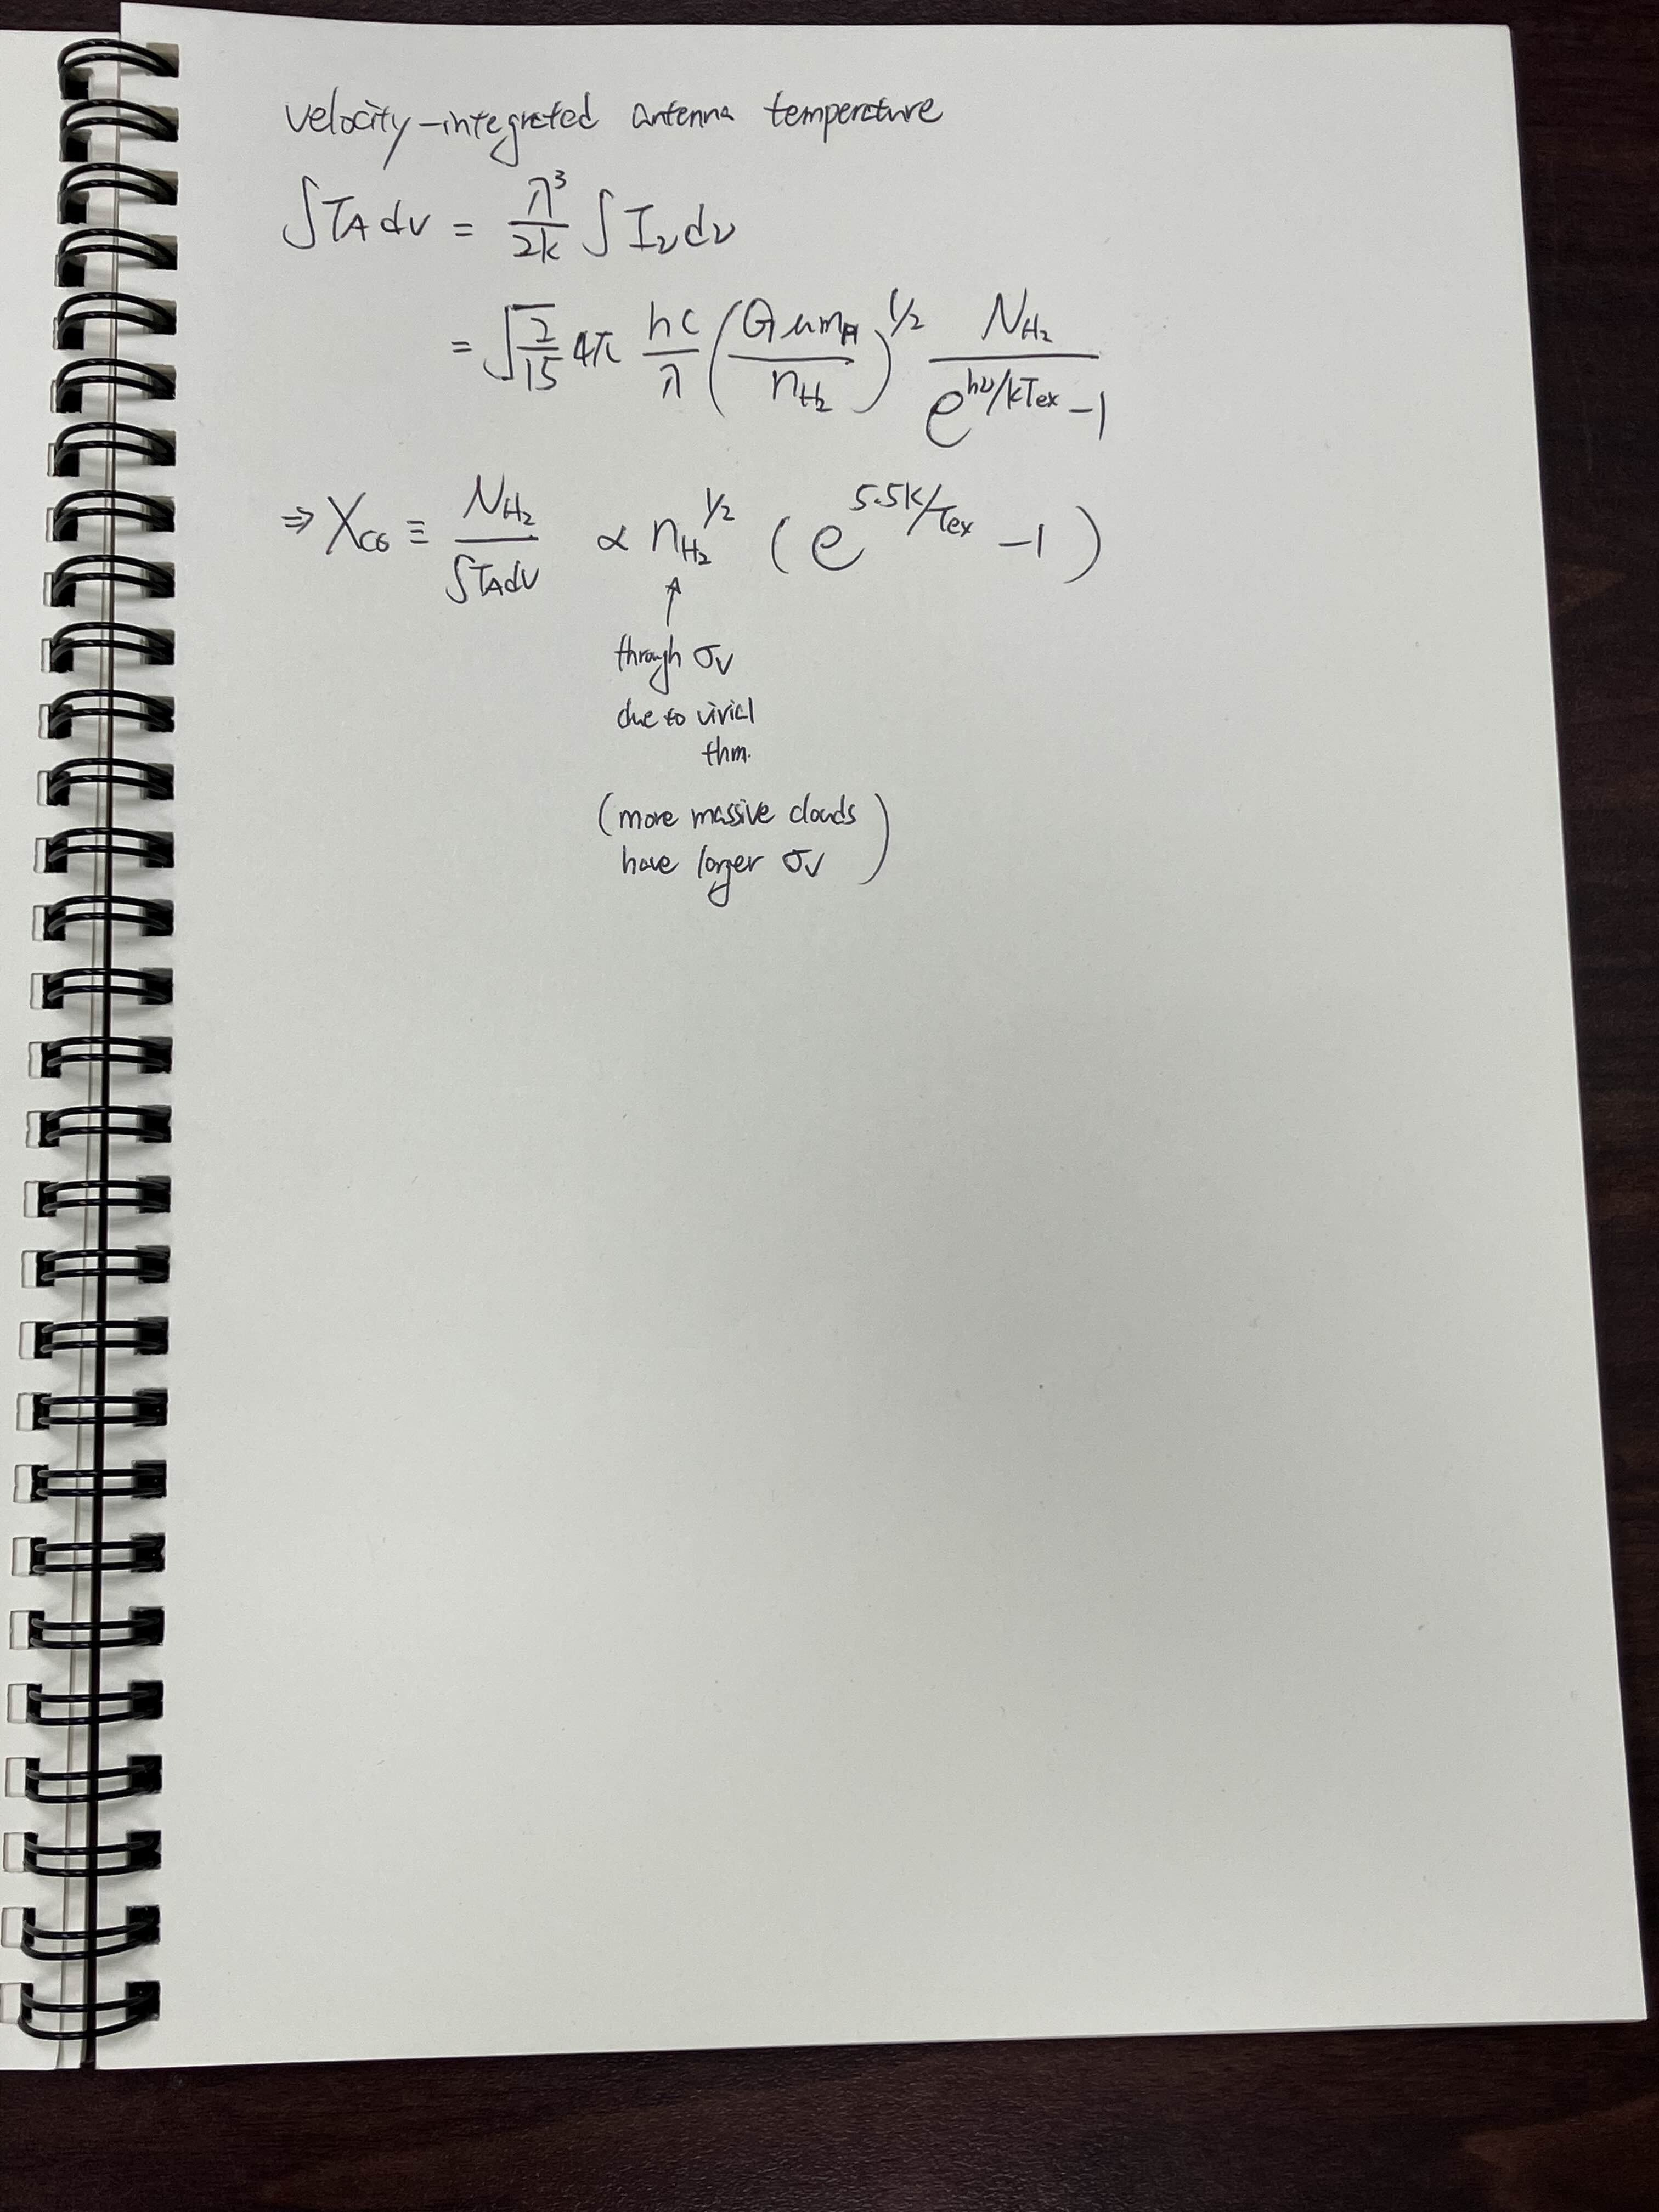 velocity-integrated antenna temperature
∫T_A dv = λ³/2k ∫ I_ν dν
= √(2/15) 4π hc/λ (Gμm_H/n_H₂)^1/2 N_H₂/(e^{hν/kTex} -1)
⇒ X_CO ≡ N_H₂/∫T_A dv ∝ n_H₂^1/2 (e^{5.5K/Tex} -1)
↑
through σ_v
due to virial
thm.
(more massive clouds
have larger σ_v)